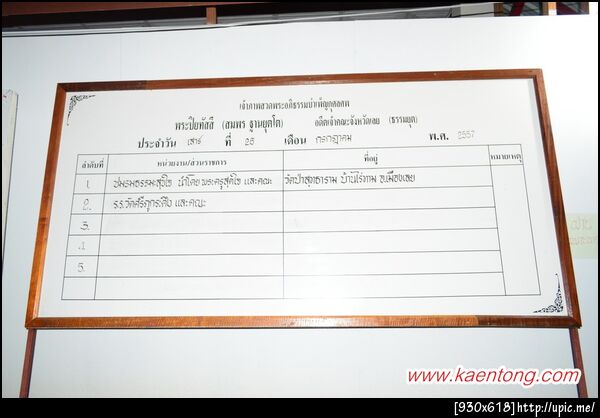 เจ้าภาพสวดพระอภิธรรมบำเพ็ญกุศลศพ
พระปิยทัสสี (สมพร ฐานยุตฺโต) อดีตเจ้าคณะจังหวัดเลย (ธรรมยุต)
ประจำวัน เสาร์ ที่ 26 เดือน กรกฎาคม พ.ศ. 2557
ลำดับที่ หน่วยงาน/ส่วนราชการ ที่อยู่ หมายเหตุ
1. ชมรมธรรมะสุขใจ นำโดย พระครูสุตัโข และคณะ วัดป่าสุทธาราม บ้านไร่ทาม อ.เมืองเลย
2. ร.ร.วัดศรีภูกระดึง และคณะ
3.
4
5.
www.kaentong.com
[930x618]http://upic.me/